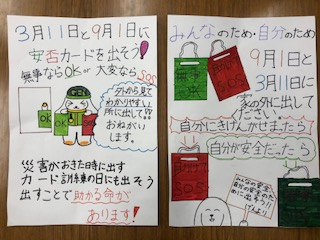 3月11日と9月1日に
安否カードを出そう!
無事ならOKor大変ならSOS
外から見て
わかりやすい
所に出して!!
おねがい
します。
OK
OK
SOS
災害がおきた時に出す
カード訓練の日にも出そう
出すことで助かる命が
あります!
みんなのため・自分のため
9月1日と
3月11日に
家の外に出して
ください!
自分にきけんがせまったら
自分が安全だったら
SOS